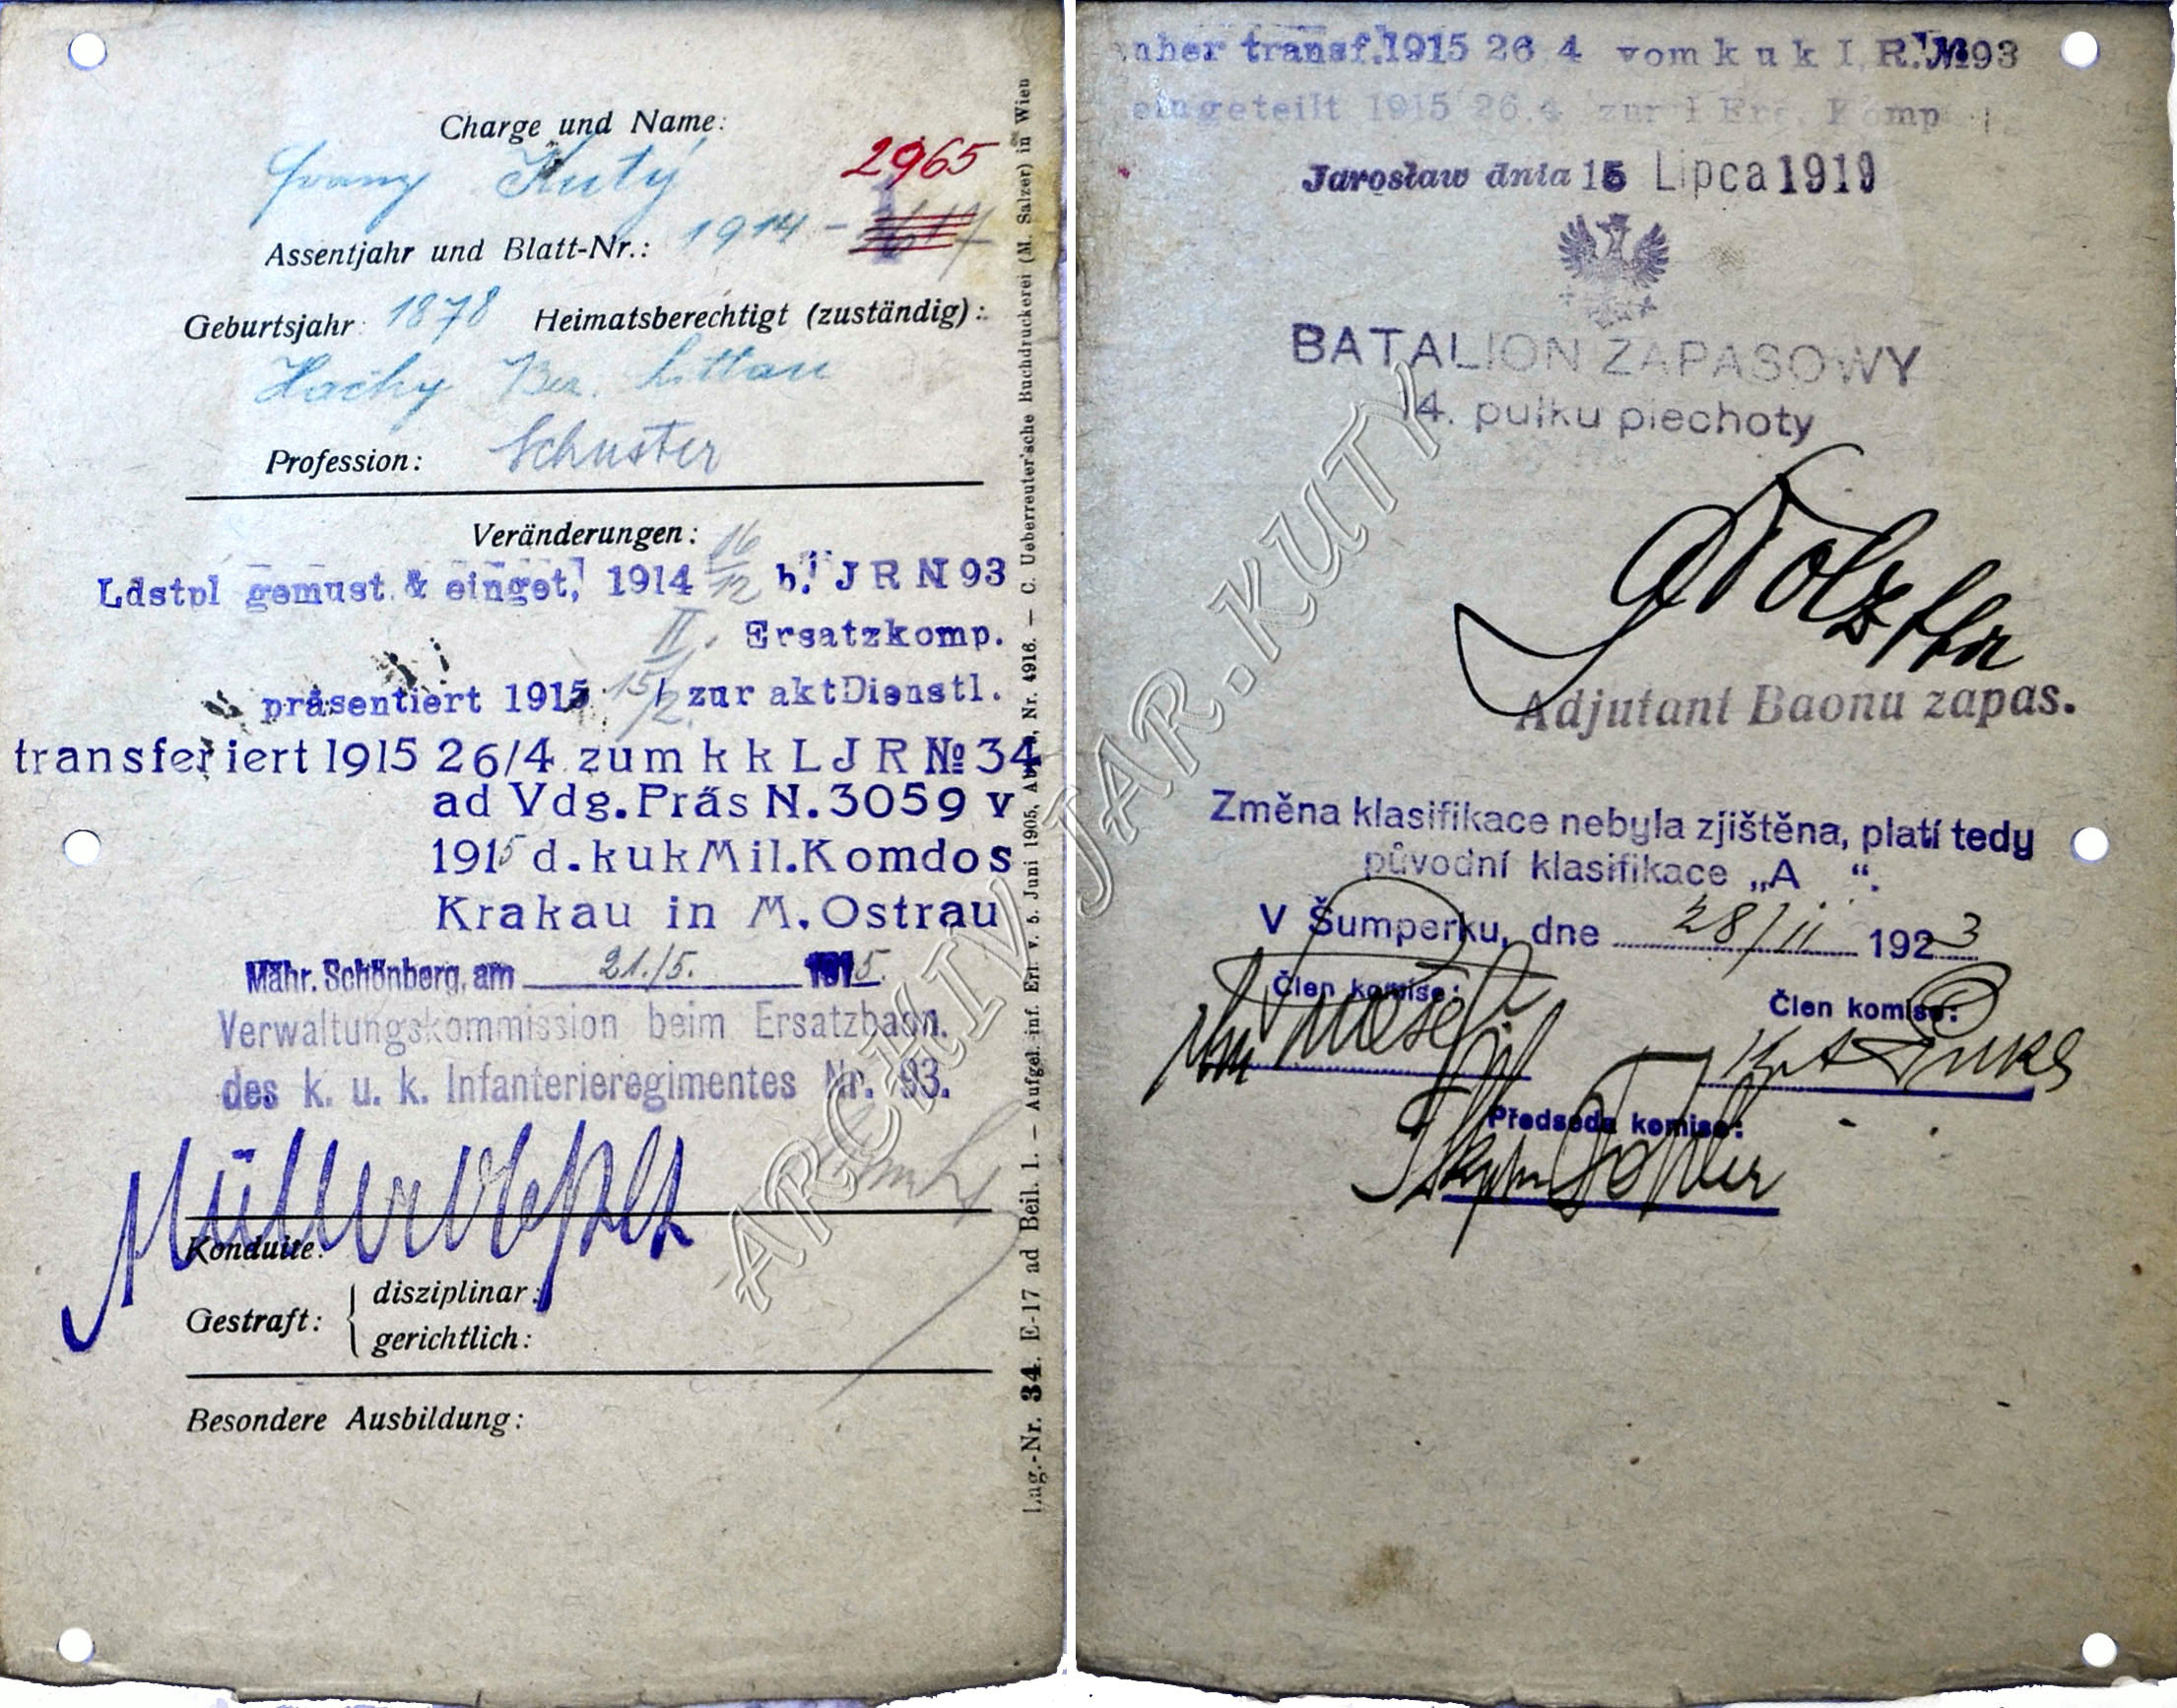 Charge und Name:
Franz Kutý
2965
Assentjahr und Blatt-Nr.: 1914 -
Geburtsjahr: 1878 Heimatsberechtigt (zuständig):
Hačky Bez. Littau
Profession: Schuster
Veränderungen:
Ldstpl gemust. & einget, 1914 16/12 b. J R N 93
II. Ersatzkomp.
präsentiert 1915 15/2. zur akt Dienstl.
transferiert 1915 26/4 zum k k L J R № 34
ad Vdg. Präs N. 3059 v
1915 d. kuk Mil. Komdos
Krakau in M. Ostrau
Mähr. Schönberg, am 21./5. 1915.
Verwaltungskommission beim Ersatzbaon.
des k. u. k. Infanterieregimentes Nr. 93.
Konduite:
Gestraft: { disziplinar:
gerichtlich:
Besondere Ausbildung:
Lag.-Nr. 34. E-17 ad Beil. 1. — Aufgel. inf. Erl. v. 5. Juni 1905, Nr. 4916. — C. Ueberreuter'sche Buchdruckerei (M. Salzer) in Wien
anher transf. 1915 26 4 vom k u k I. R. № 93
eingeteilt 1915 26.4 zur 1 Erg. Komp
Jarosław dnia 15 Lipca 1919
BATALION ZAPASOWY
14. pułku piechoty
Adjutant Baonu zapas.
Změna klasifikace nebyla zjištěna, platí tedy
původní klasifikace „A “.
V Šumperku, dne 28/II 1923
Člen komise:
Člen komise:
Předseda komise:
ARCHIV JAR.KUTÝ